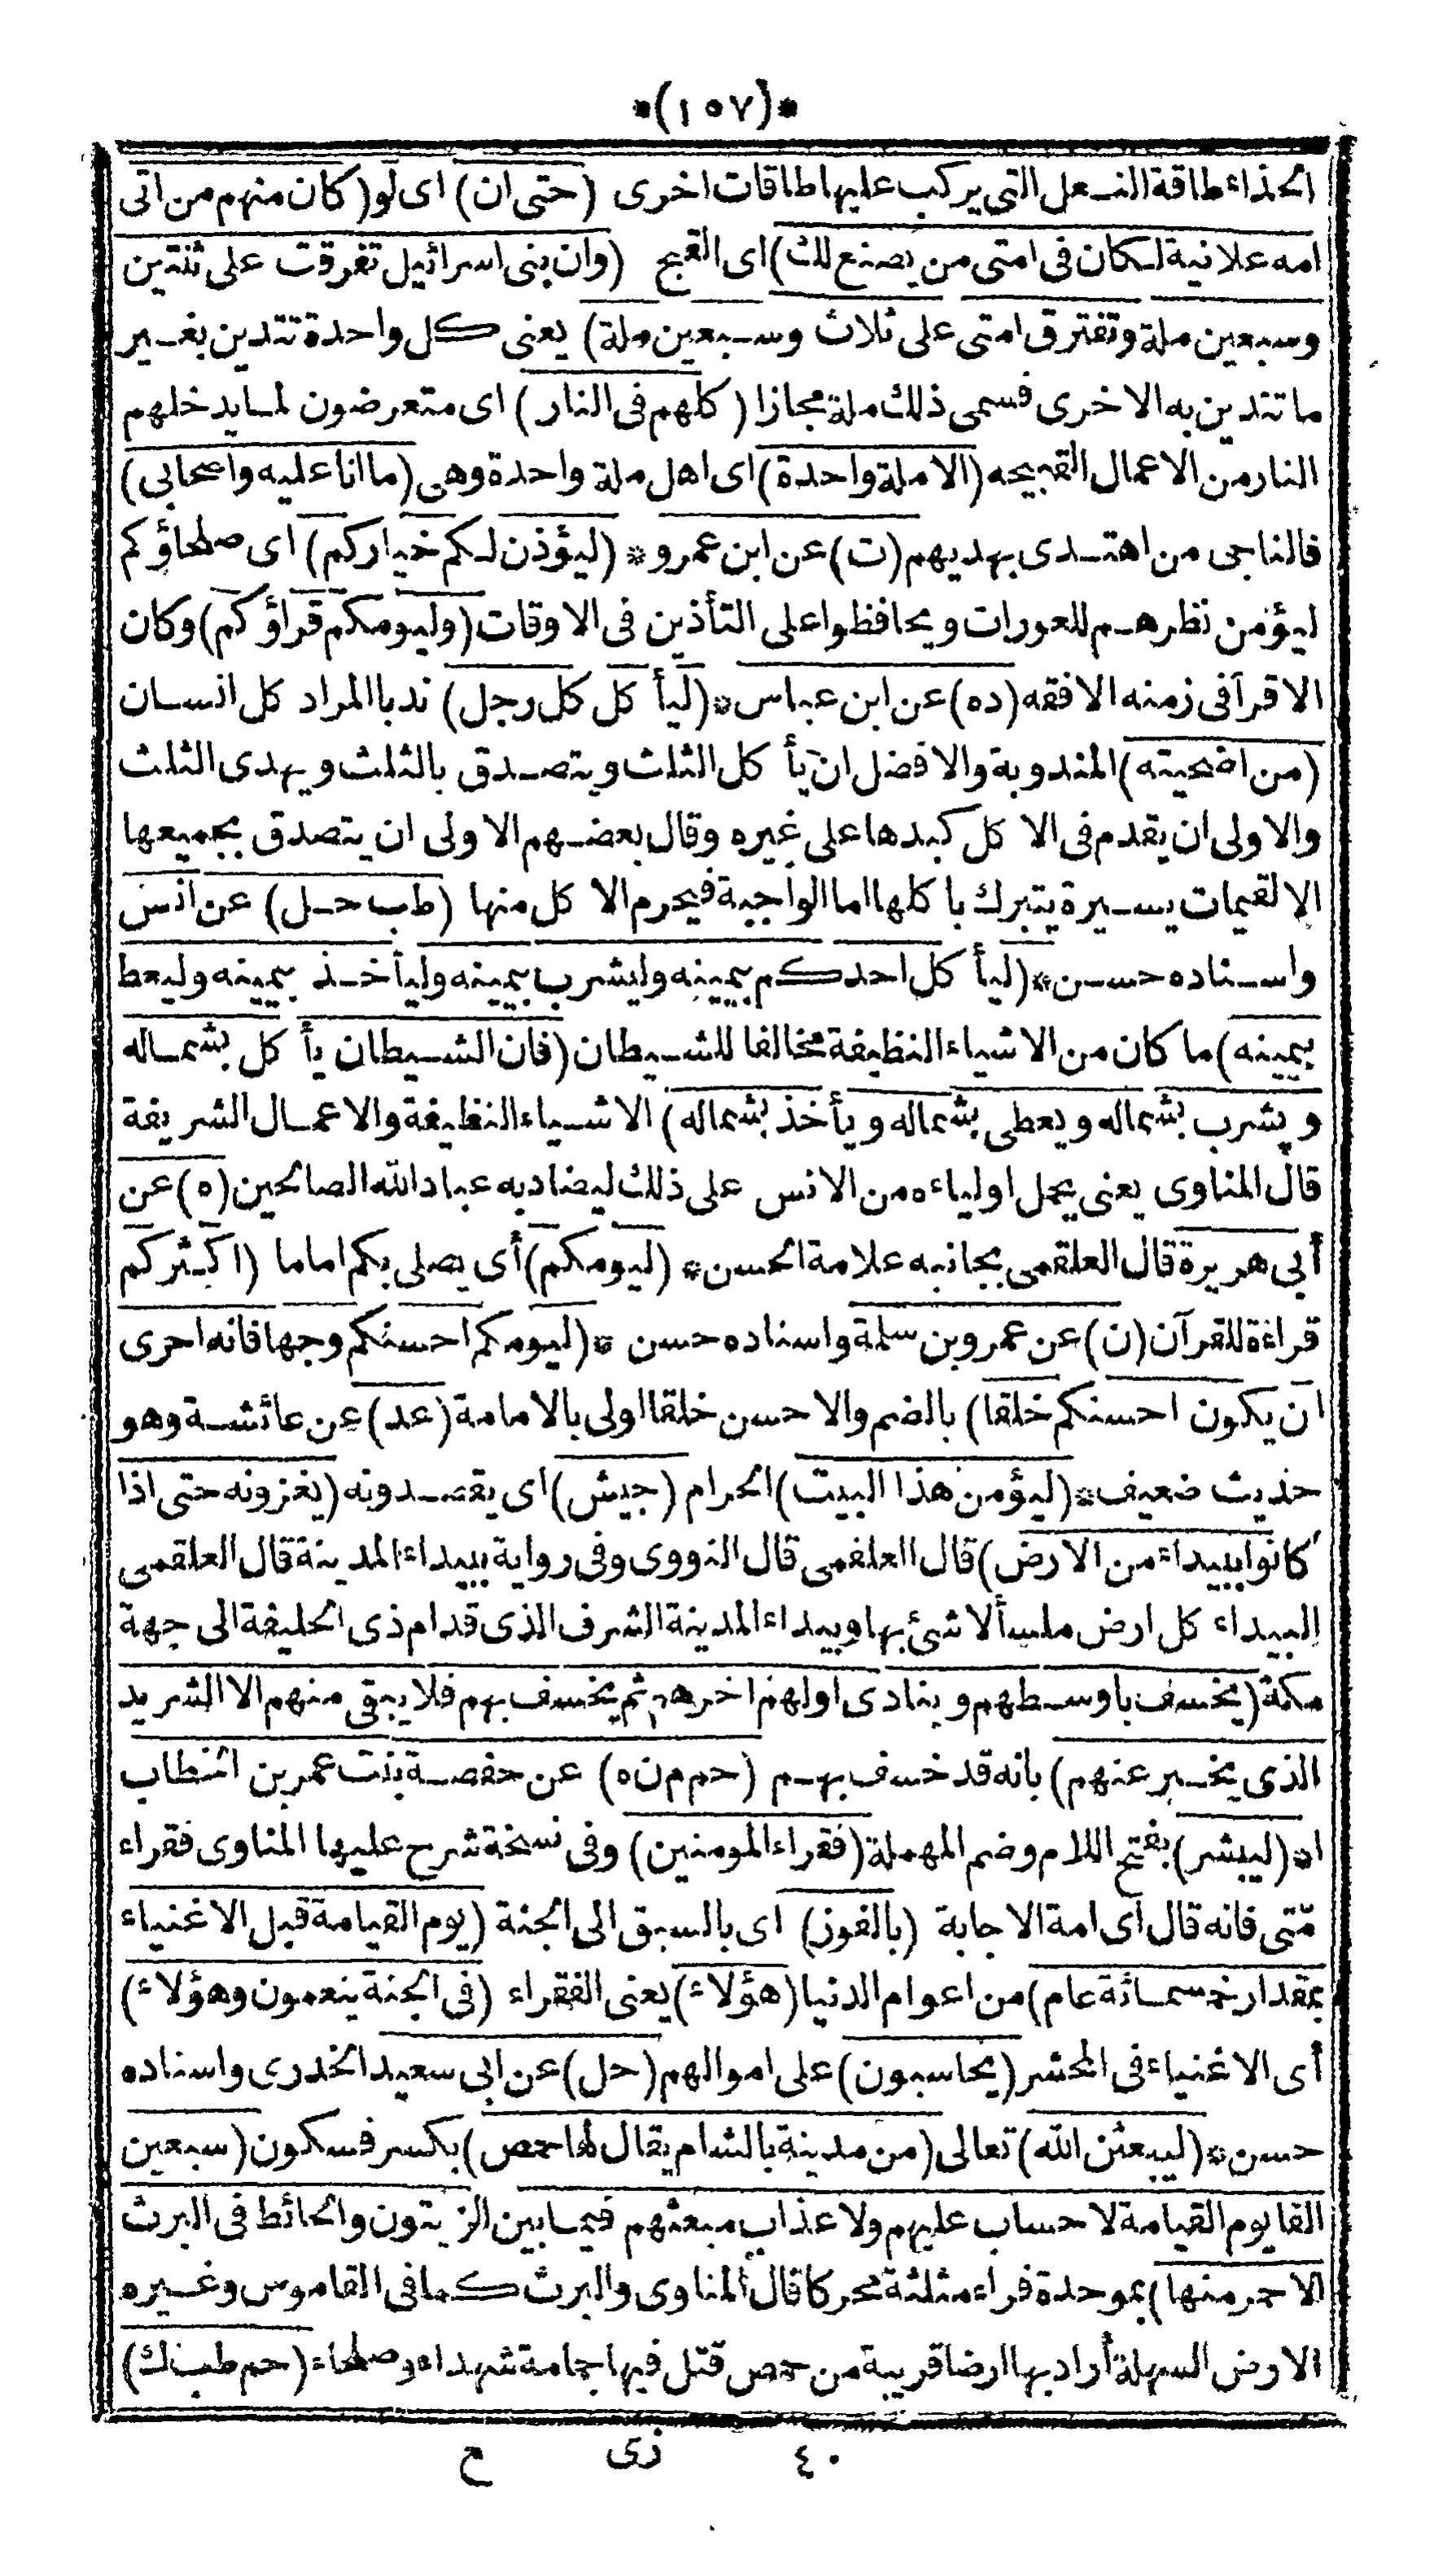 *(١٥٧)*
الحذاء طاقة النعل التي يركب عليها طاقات اخرى (حتى ان) اى لو (كان منهم من اتى
امه علانية لكان فى امتى من يصنع ذلك) اى القبيح (وان بنى اسرائيل تفرقت على ثنتين
وسبعين ملة وتفترق امتى على ثلاث وسبعين ملة) يعنى كل واحدة تتدين بغير
ما تتدين به الاخرى فسمى ذلك ملة مجازا (كلهم فى النار) اى متعرضون لما يدخلهم
النار من الاعمال القبيحه (الا ملة واحدة) اى اهل ملة واحدة وهى (ما انا عليه واصحابى)
فالناجى من اهتدى بهديهم (ت) عن ابن عمرو * (ليؤذن لكم خياركم) اى صلحاؤكم
ليؤمن نظرهم للعورات ويحافظوا على التأذين فى الاوقات (وليومكم قراؤكم) وكان
الاقرأ فى زمنه الافقه (ده) عن ابن عباس * (ليأكل كل رجل) ندبا المراد كل انسان
(من اضحيته) المندوبة والافضل ان يأكل الثلث ويتصدق بالثلث ويهدى الثلث
والاولى ان يقدم فى الاكل كبدها على غيره وقال بعضهم الاولى ان يتصدق بجميعها
الا لقيمات يسيرة يتبرك باكلها اما الواجبة فيحرم الاكل منها (طب حل) عن انس
واسناده حسن * (ليأكل احدكم بيمينه وليشرب بيمينه وليأخذ بيمينه وليعط
بيمينه) ما كان من الاشياء النظيفة مخالفا للشيطان (فان الشيطان يأكل بشماله
ويشرب بشماله ويعطى بشماله ويأخذ بشماله) الاشياء النظيفة والاعمال الشريفة
قال المناوى يعنى يحمل اولياءه من الانس على ذلك ليضاد به عباد الله الصالحين (ه) عن
أبى هريرة قال العلقمى بجانبه علامة الحسن * (ليومكم) أى يصلى بكم اماما (اكثركم
قراءة للقرآن (ن) عن عمرو بن سلمة واسناده حسن * (ليومكم احسنكم وجها فانه احرى
ان يكون احسنكم خلقا) بالضم والاحسن خلقا اولى بالامامة (عد) عن عائشة وهو
حديث ضعيف * (ليؤمن هذا البيت) الحرام (جيش) اى يقصدونه (يغزونه حتى اذا
كانوا ببيداء من الارض) قال العلقمى قال النووى وفى رواية ببيداء المدينة قال العلقمى
البيداء كل ارض ملسأ لا شئ بها وبيداء المدينة الشرف الذى قدام ذى الحليفة الى جهة
مكة (يخسف باوسطهم وينادى اولهم اخرهم ثم يخسف بهم فلا يبقى منهم الا الشريد
الذى يخبر عنهم) بانه قد خسف بهم (حم م ن ه) عن حفصة بنت عمر بن الخطاب
اه (ليبشر) بفتح اللام وضم المهملة (فقراء المومنين) وفى نسخة شرح عليها المناوى فقراء
متى فانه قال اى امة الاجابة (بالفوز) اى بالسبق الى الجنة (يوم القيامة قبل الاغنياء
بمقدار خمسمائة عام) من اعوام الدنيا (هؤلاء) يعنى الفقراء (فى الجنة ينعمون وهؤلاء)
أى الاغنياء فى المحشر (يحاسبون) على اموالهم (حل) عن ابى سعيد الخدرى واسناده
حسن * (ليبعثن الله) تعالى (من مدينة بالشام يقال لها حمص) بكسر فسكون (سبعين
الفا يوم القيامة لا حساب عليهم ولا عذاب مبعثهم فيما بين الزيتون والحائط فى البرث
الاحمر منها) بموحدة فراء مثلثة محركا قال المناوى والبرث كما فى القاموس وغيره
الارض السهلة أراد بها ارضا قريبة من حمص قتل فيها جمامة شهداء وصلحاء (حم طب ك)
٤٠ زى ح